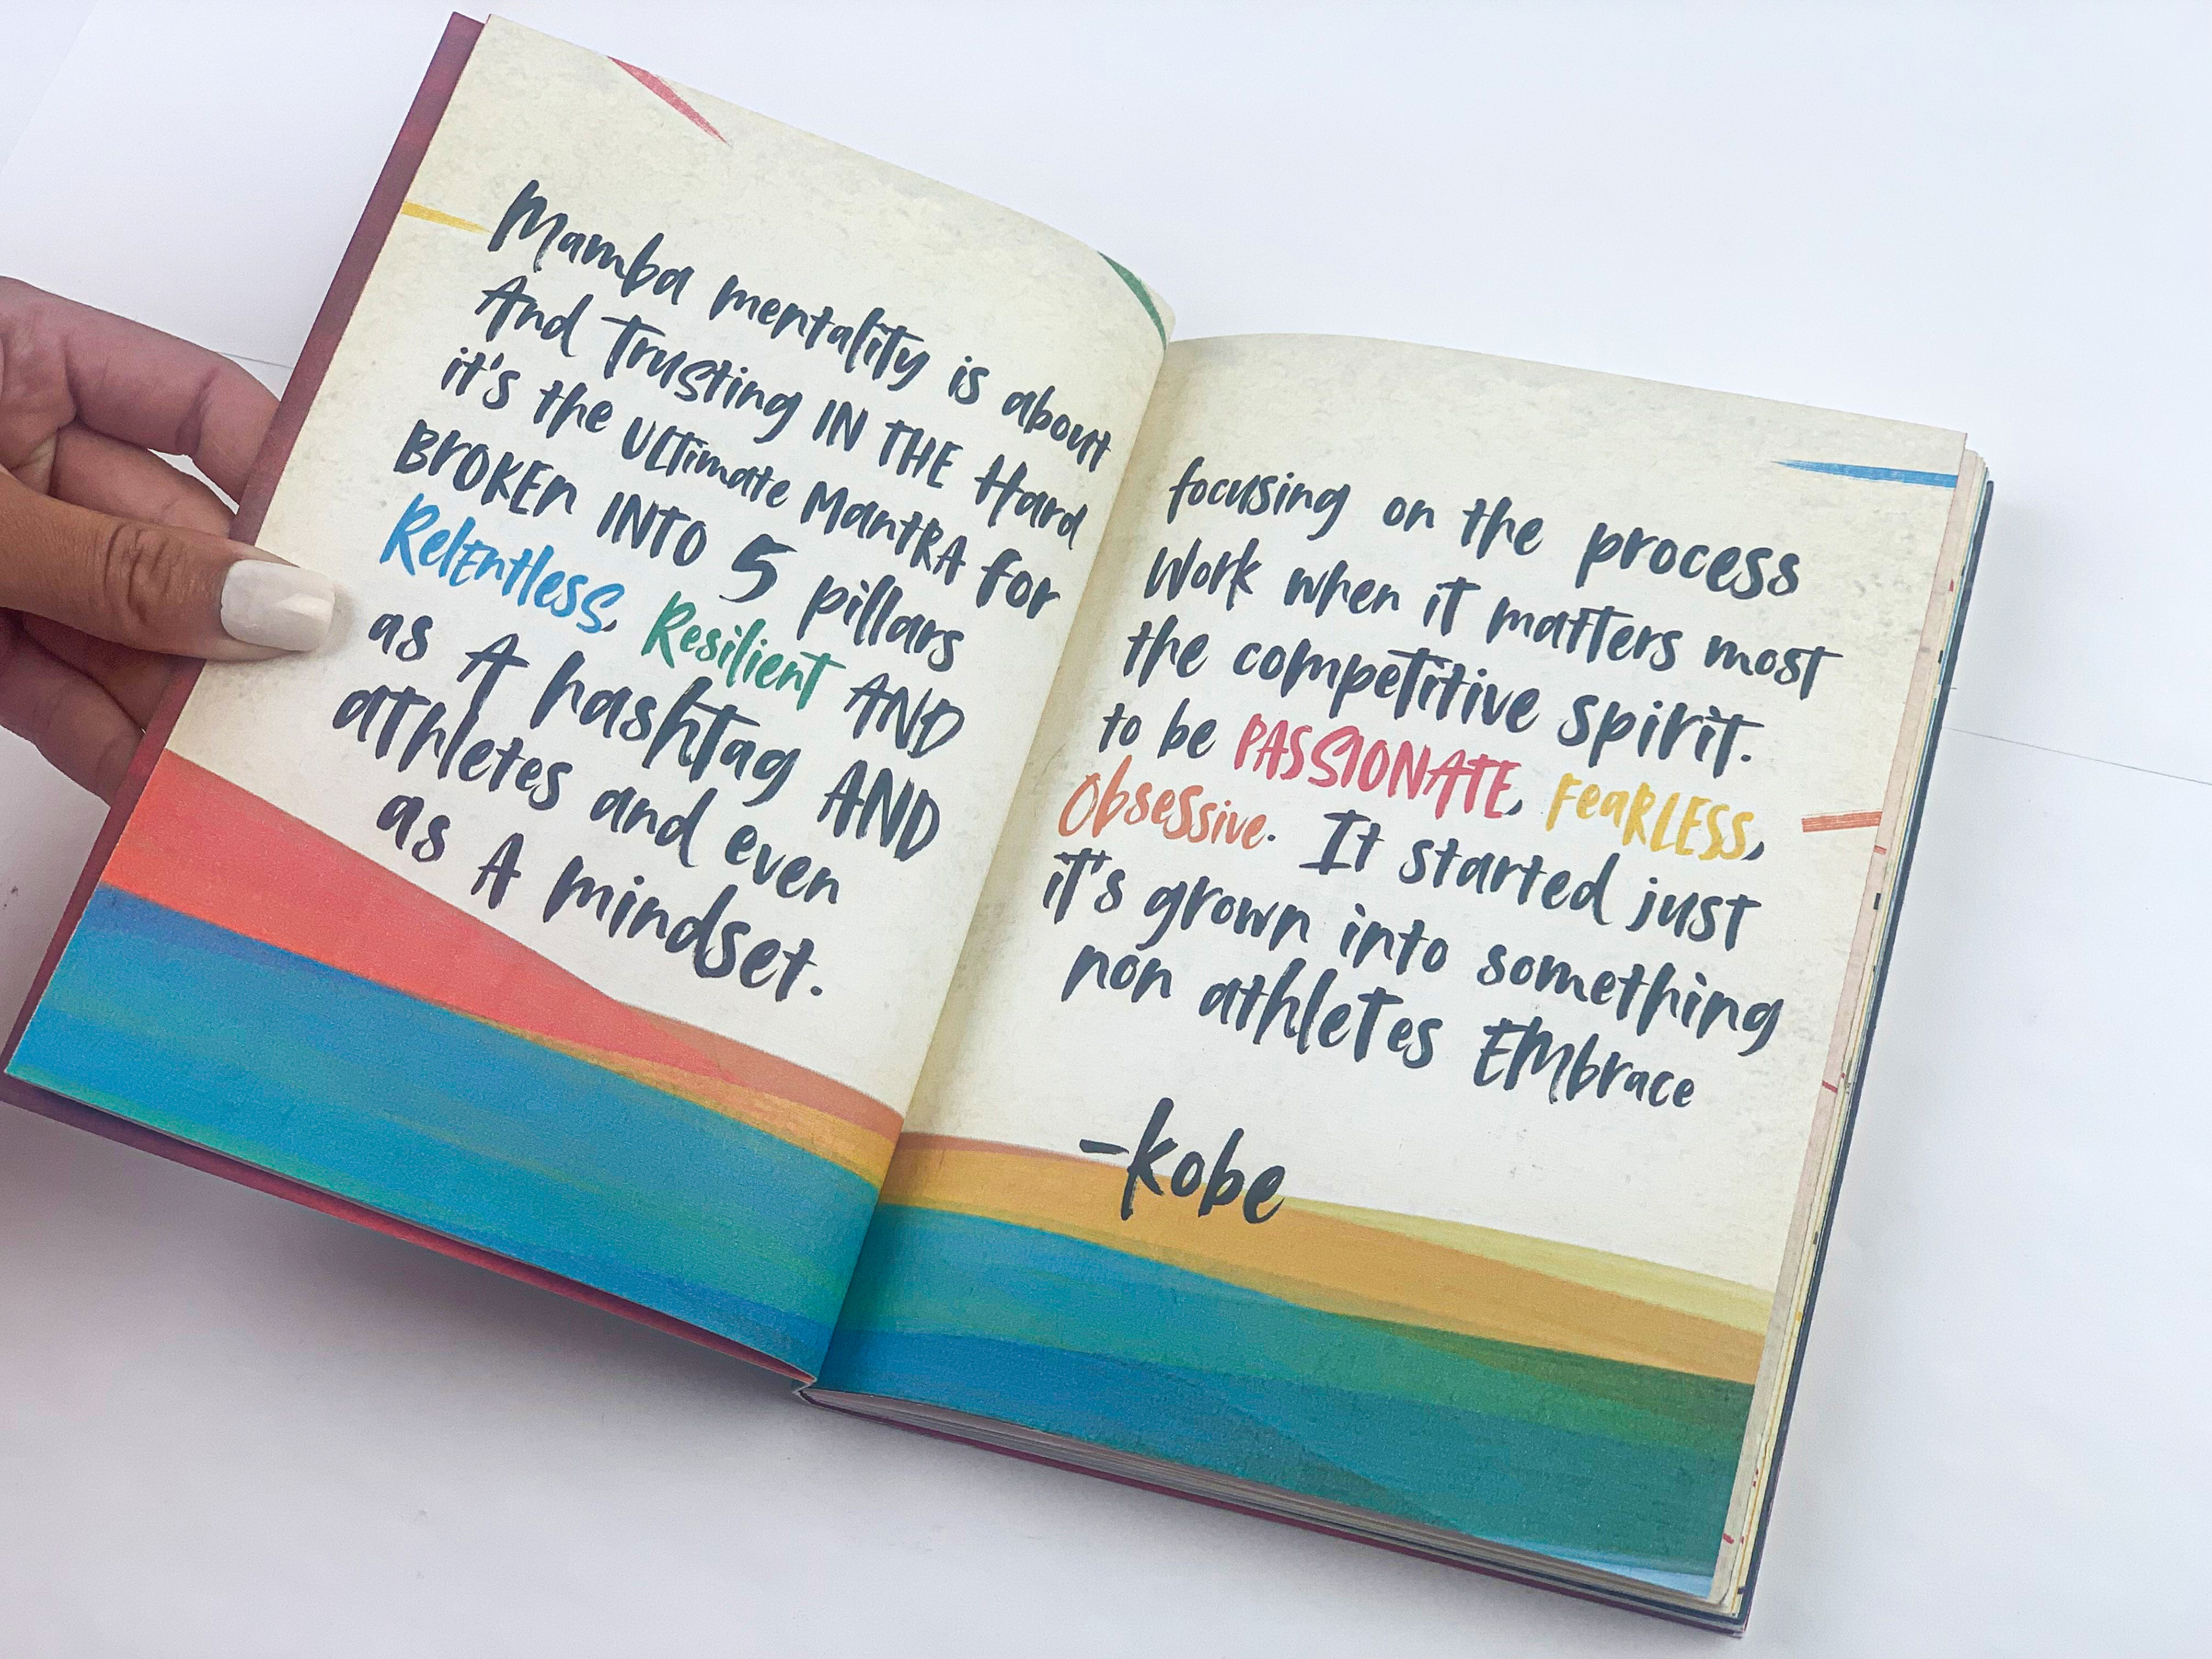 Mamba mentality is about focusing on the process
And Trusting IN THE Hard Work when it matters most
it's the ULTimate MantRA for the competitive spirit.
BROKEn INTO 5 pillars to be PASSIONATE, FeaRLESS,
RelEntless, Resilient AND Obsessive. It started just
as A hashtag AND it's grown into something
athletes and even non athletes EMbrace
as A mindset.
-kobe